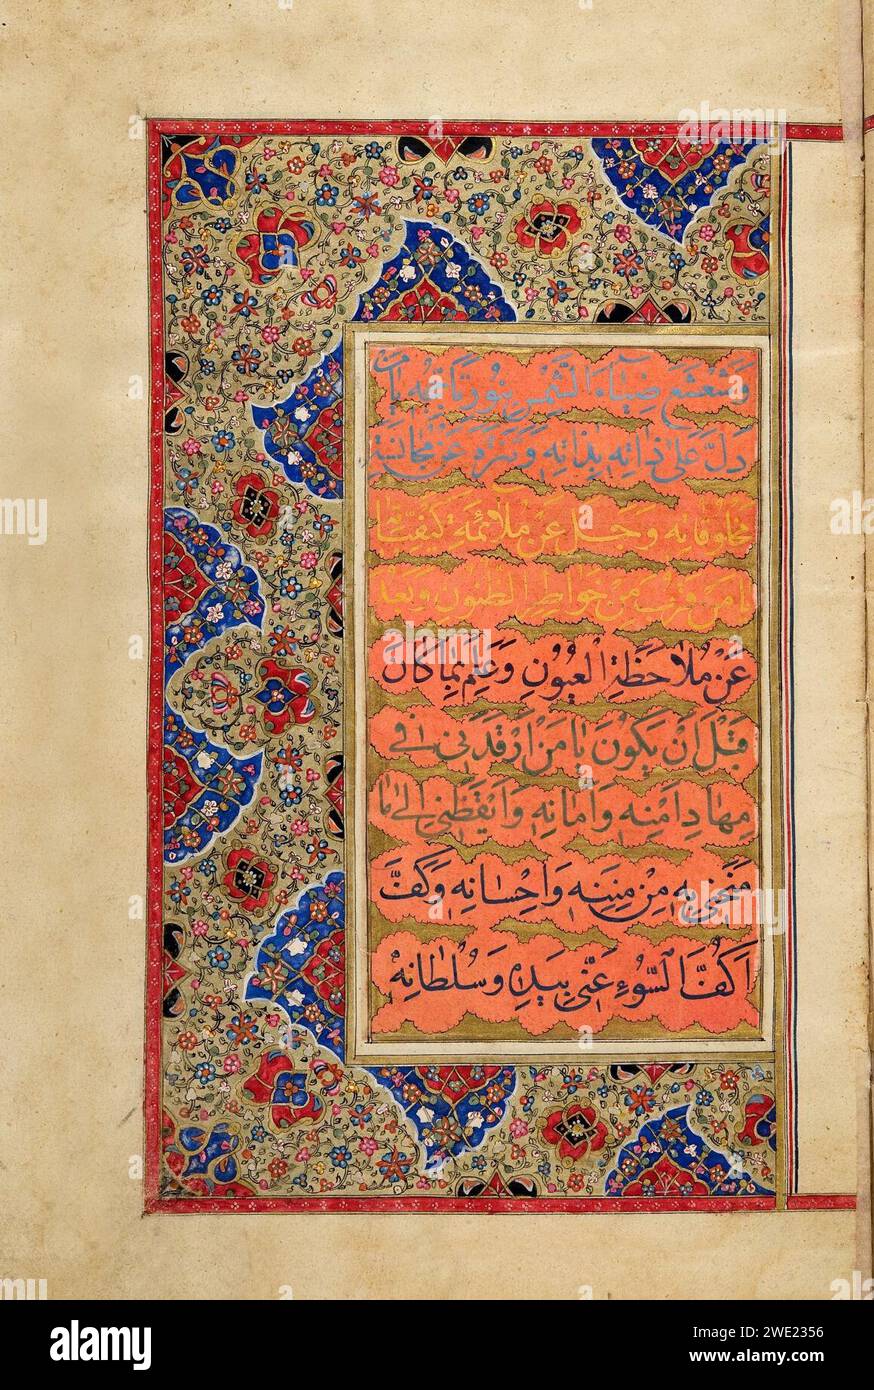 وَشَعْشَعَ ضِيَآءَ الشَّمْسِ بِنُورِ تَأَجُّجِهِ يَا مَنْ
دَلَّ عَلَى ذَاتِهِ بِذَاتِهِ وَتَنَزَّهَ عَنْ مُجَانَسَةِ
مَخْلُوقَاتِهِ وَجَلَّ عَنْ مُلَآئَمَةِ كَيْفِيَّاتِهِ
يَا مَنْ قَرُبَ مِنْ خَوَاطِرِ الظُّنُونِ وَبَعُدَ
عَنْ مُلَاحَظَةِ الْعُيُونِ وَعَلِمَ بِمَا كَانَ
قَبْلَ اَنْ يَكُونَ يَا مَنْ اَرْقَدَنِى فِى
مِهَادِ اَمْنِهِ وَاَمَانِهِ وَاَيْقَظَنِى اِلَى مَا
مَنَحَنِى بِهِ مِنْ مِنَنِهِ وَاِحْسَانِهِ وَكَفَّ
اَكُفَّ السُّوۤءِ عَنِّى بِيَدِهِ وَسُلْطَانِهِ
alamy
Image ID: 2WE2356
www.alamy.com